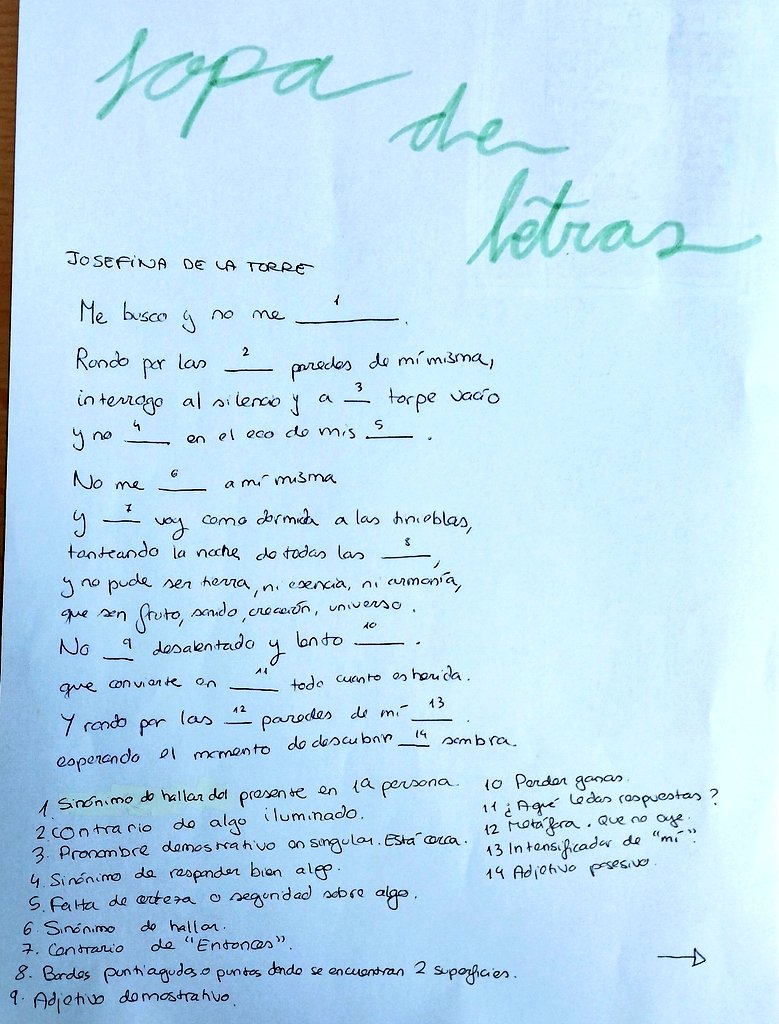 sopa
de
letras
JOSEFINA DE LA TORRE
Me busco y no me 1 ______.
Rondo por las 2 ____ paredes de mí misma,
interrogo al silencio y a 3 ___ torpe vacío
y no 4 ____ en el eco de mis 5 ____.
No me 6 ____ a mí misma
y 7 ____ voy como dormida a las tinieblas,
tanteando la noche de todas las 8 ____,
y no pude ser tierra, ni esencia, ni armonía,
que son fruto, sonido, creación, universo.
No 9 ___ desalentado y lento 10 ____.
que convierte en 11 ____ todo cuanto es herida.
Y rondo por las 12 ___ paredes de mí 13 ____.
esperando el momento de descubrir 14 ___ sombra.
1. Sinónimo de hallar del presente en 1a persona.
2. Contrario de algo iluminado.
3. Pronombre demostrativo en singular. Está cerca.
4. Sinónimo de responder bien algo.
5. Falta de certeza o seguridad sobre algo.
6. Sinónimo de hallar.
7. Contrario de "Entonces".
8. Bordes puntiagudos o puntos donde se encuentran 2 superficies.
9. Adjetivo demostrativo.
10 Perder ganas.
11 ¿A qué le das respuestas?
12 Metáfora. Que no oye.
13 Intensificador de "mí".
14 Adjetivo posesivo.